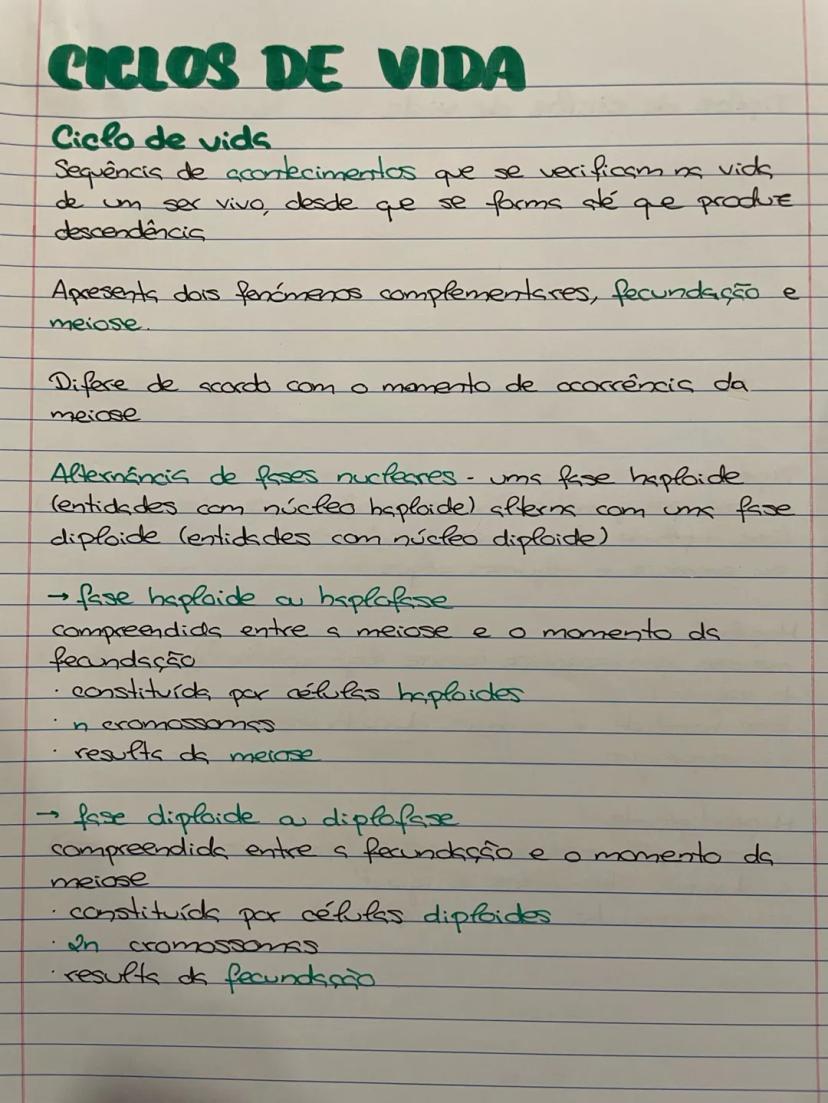 CICLOS DE VIDA
Ciclo de vida
Sequência de acontecimentos que se verificam na vida
de um ser vivo, desde que se forma até que produz
descendência
Apresenta dois fenómenos complementares, fecundação e
meiose.
Difere de acordo com o momento de ocorrência da
meiose
Alternância de fases nucleares - uma fase haploide
(entidades com núcleo haploide) alterna com uma fase
diploide (entidades com núcleo diploide)
→ fase haploide ou haplofase
compreendida entre a meiose e o momento da
fecundação
· constituída por células haploides
· n cromossomas
· resulta da meiose
→ fase diploide ou diplofase
compreendida entre a fecundação e o momento da
meiose
· constituída por células diploides
· 2n cromossomas
· resulta da fecundação